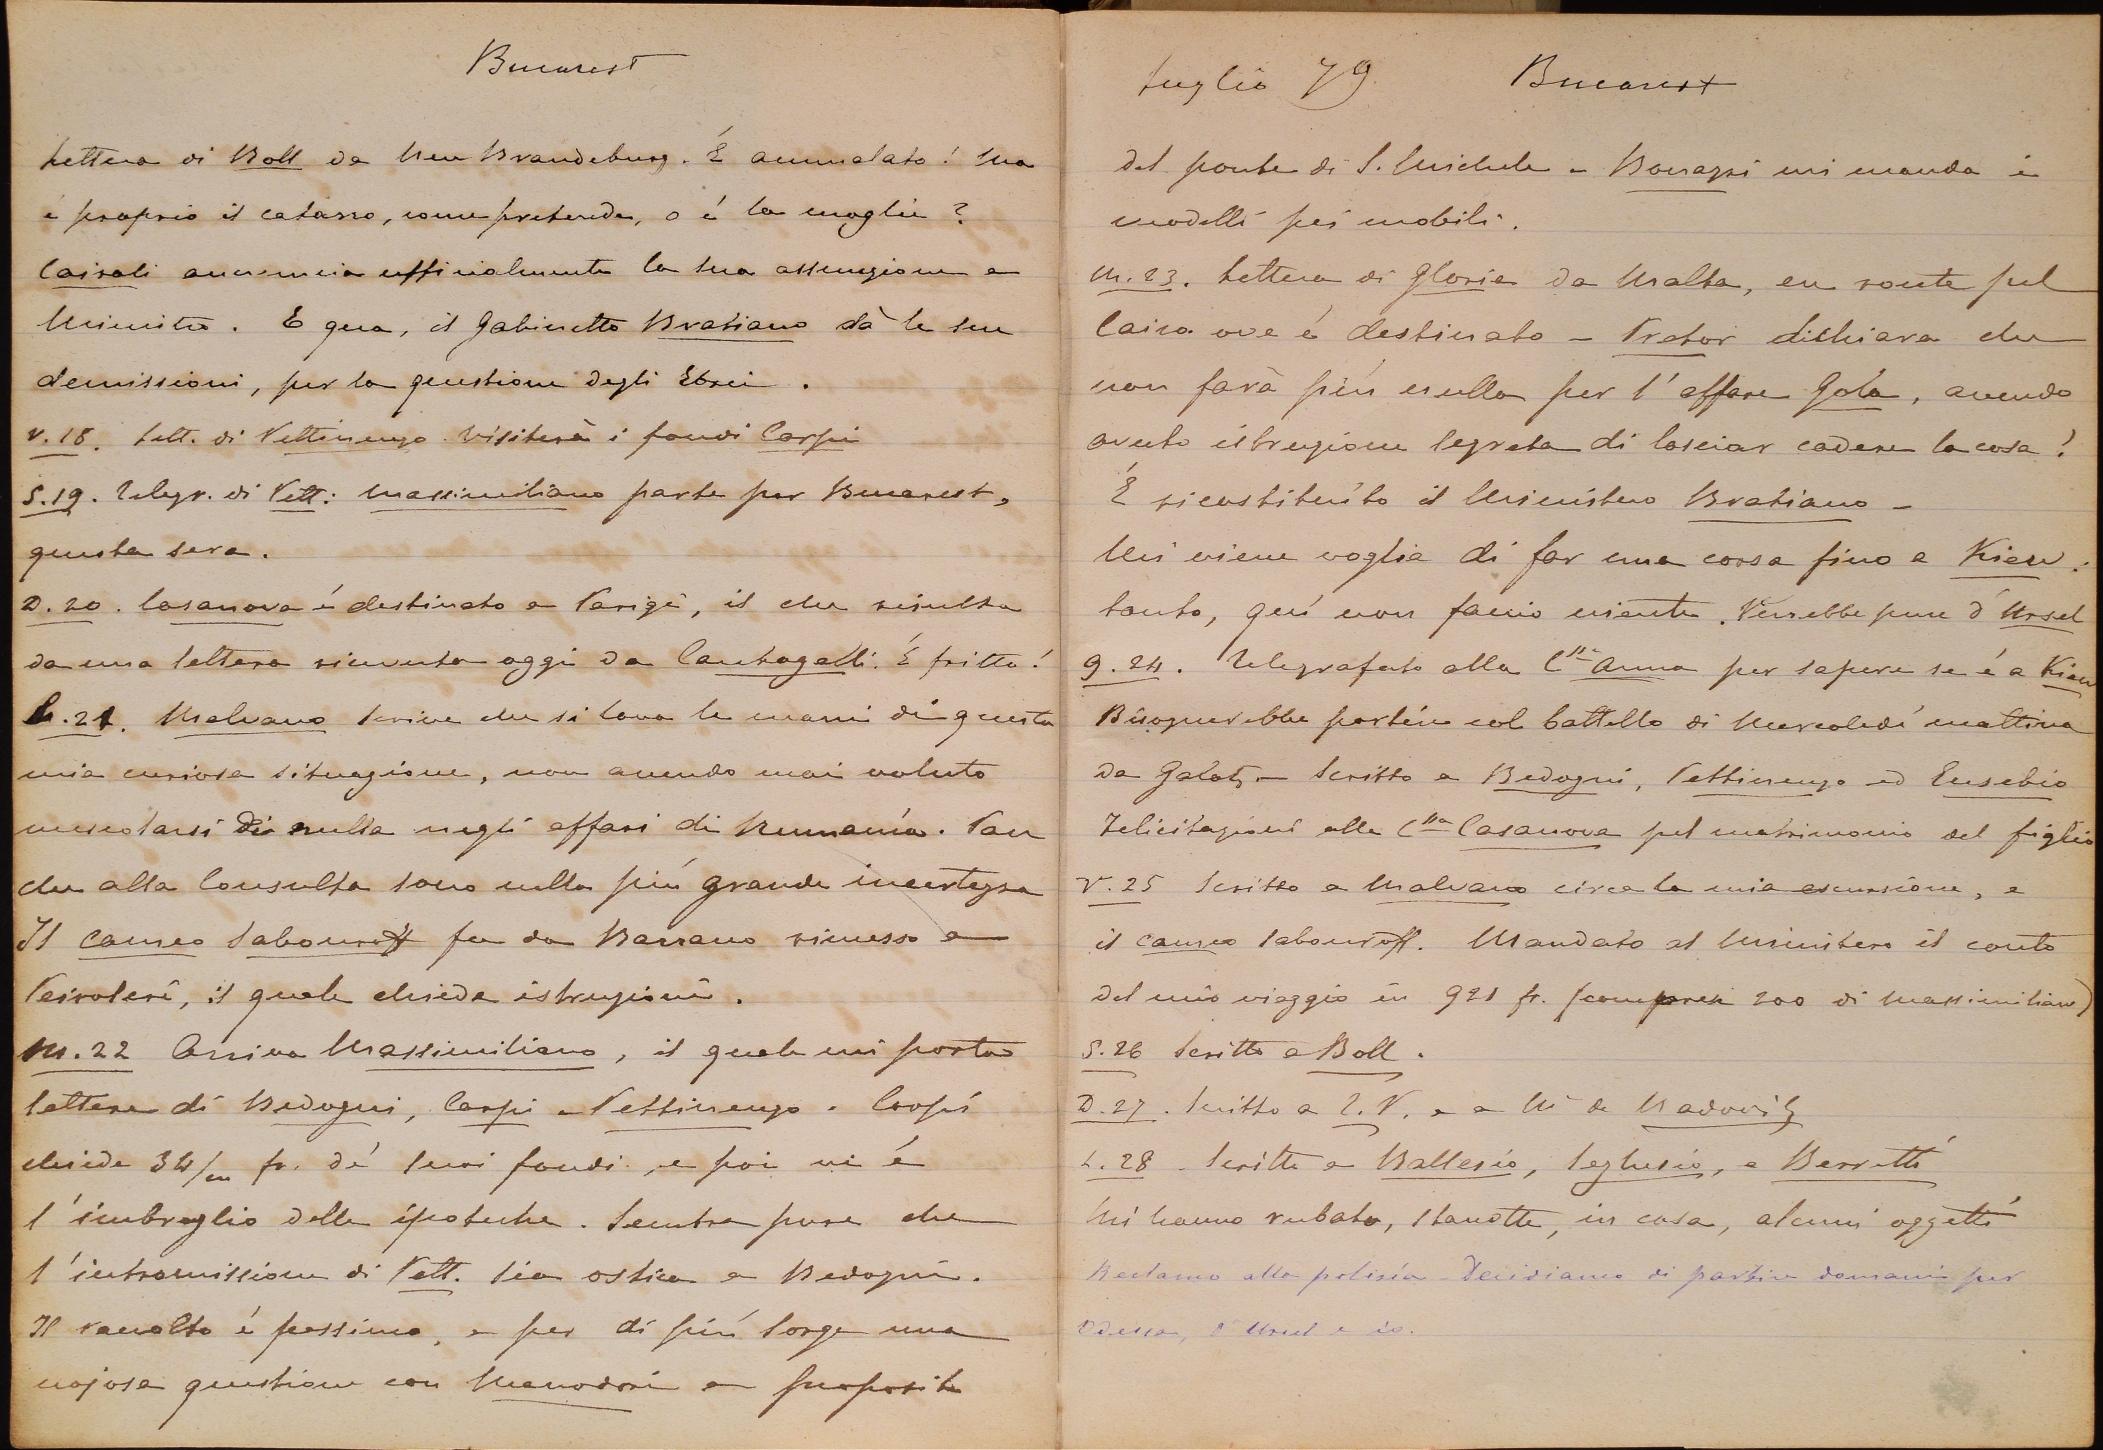 Bucarest
Lettera di Boll da Neu Brandeburg. È ammalato! Ma
è proprio il catarro, come pretende, o è la moglie?
Cairoli annuncia ufficialmente la sua assunzione a
Ministro. E qua, il Gabinetto Bratiano dà le sue
demissioni, per la questione degli Ebrei.
V. 18. Lett. di Pettinengo. Visiterà i fondi Carpi
S. 19. Telegr. di Pett: Massimiliano parte per Bucarest,
questa sera.
D. 20. Casanova è destinato a Parigi, il che risulta
da una lettera ricevuta oggi da Cantagalli. È fritto!
L. 21. Malvano scrive che si lava le mani di questa
mia curiosa situazione, non avendo mai voluto
mescolarsi di nulla negli affari di Rumania. Pare
che alla Consulta sono nella più grande incertezza
Il cameo Sabouroff fu da Barrano rimesso a
Peiroleri, il quale chiede istruzioni.
M. 22 Arriva Massimiliano, il quale mi porta
lettere di Bedogni, Carpi e Pettinengo. Carpi
chiede 34/m fr. de' suoi fondi, e poi vi è
l'imbroglio delle ipoteche. Sembra pure che
l'intromissione di Pett. sia ostica a Bedogni.
Il raccolto è pessimo, e per di più sorge una
nojosa questione con Menodori a proposito
Luglio 79 Bucarest
del ponte di S. Michele - Bonazzi mi manda i
modelli pei mobili.
M. 23. Lettera di Gloria da Malta, en route pel
Cairo ove è destinato - Pretor dichiara che
non farà più nulla per l'affare Gola, avendo
avuto istruzione segreta di lasciar cadere la cosa!
È ricostituito il Ministero Bratiano -
Mi viene voglia di far una corsa fino a Kiew:
tanto, qui non faccio niente. Verrebbe pure d'Ursel
G. 24. Telegrafato alla Ctssa Anna per sapere se è a Kiew
Bisognerebbe partire col battello di Mercoledì mattina
da Galatz - Scritto a Bedogni, Pettinengo ed Eusebio
Felicitazioni alla Ctssa Casanova pel matrimonio del figlio
V. 25 Scritto a Malvano circa la mia escursione, e
il cameo Sabouroff. Mandato al Ministero il conto
del mio viaggio in 921 fr. (compresi 200 di Massimiliano)
S. 26 Scritto a Boll.
D. 27. Scritto a e a Mr de Radovitz
L. 28. Scritto a Ballesio, Seghesio, e Berretti
Mi hanno rubato, stanotte, in casa, alcuni oggetti
Reclamo alla polizia - Decidiamo di partire domani per
Odessa, d'Ursel e io.